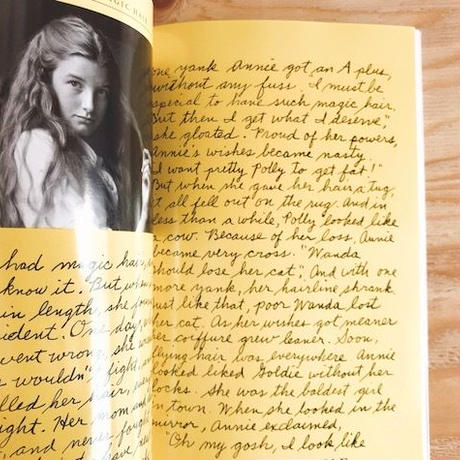 MAGIC HAIR
had magic hair
know it. "But wh
in length, she fo
ident. One day,
went wrong, she w
wouldn't fight, an
lled her hair,
ight. Her mom and
, and never fough
one yank Annie got an A plus,
without any fuss. "I must be
special to have such magic hair.
But then I get what I deserve,"
she gloated. Proud of her powers,
Annie's wishes became nasty.
I want pretty Polly to get fat!"
But when she gave her hair a tug,
it all fell out on the rug. And in
less than a while, Polly looked like
a cow. Because of her loss, Annie
became very cross. "Wanda
should lose her cat", And with one
more yank, her hairline shrank
just like that, poor Wanda lost
her cat. As her wishes got meaner
her coiffure grew leaner. Soon,
flying hair was everywhere Annie
looked liked Goldie without her
locks. She was the baldest girl
in town. When she looked in the
mirror, Annie exclaimed,
"Oh my gosh, I look like